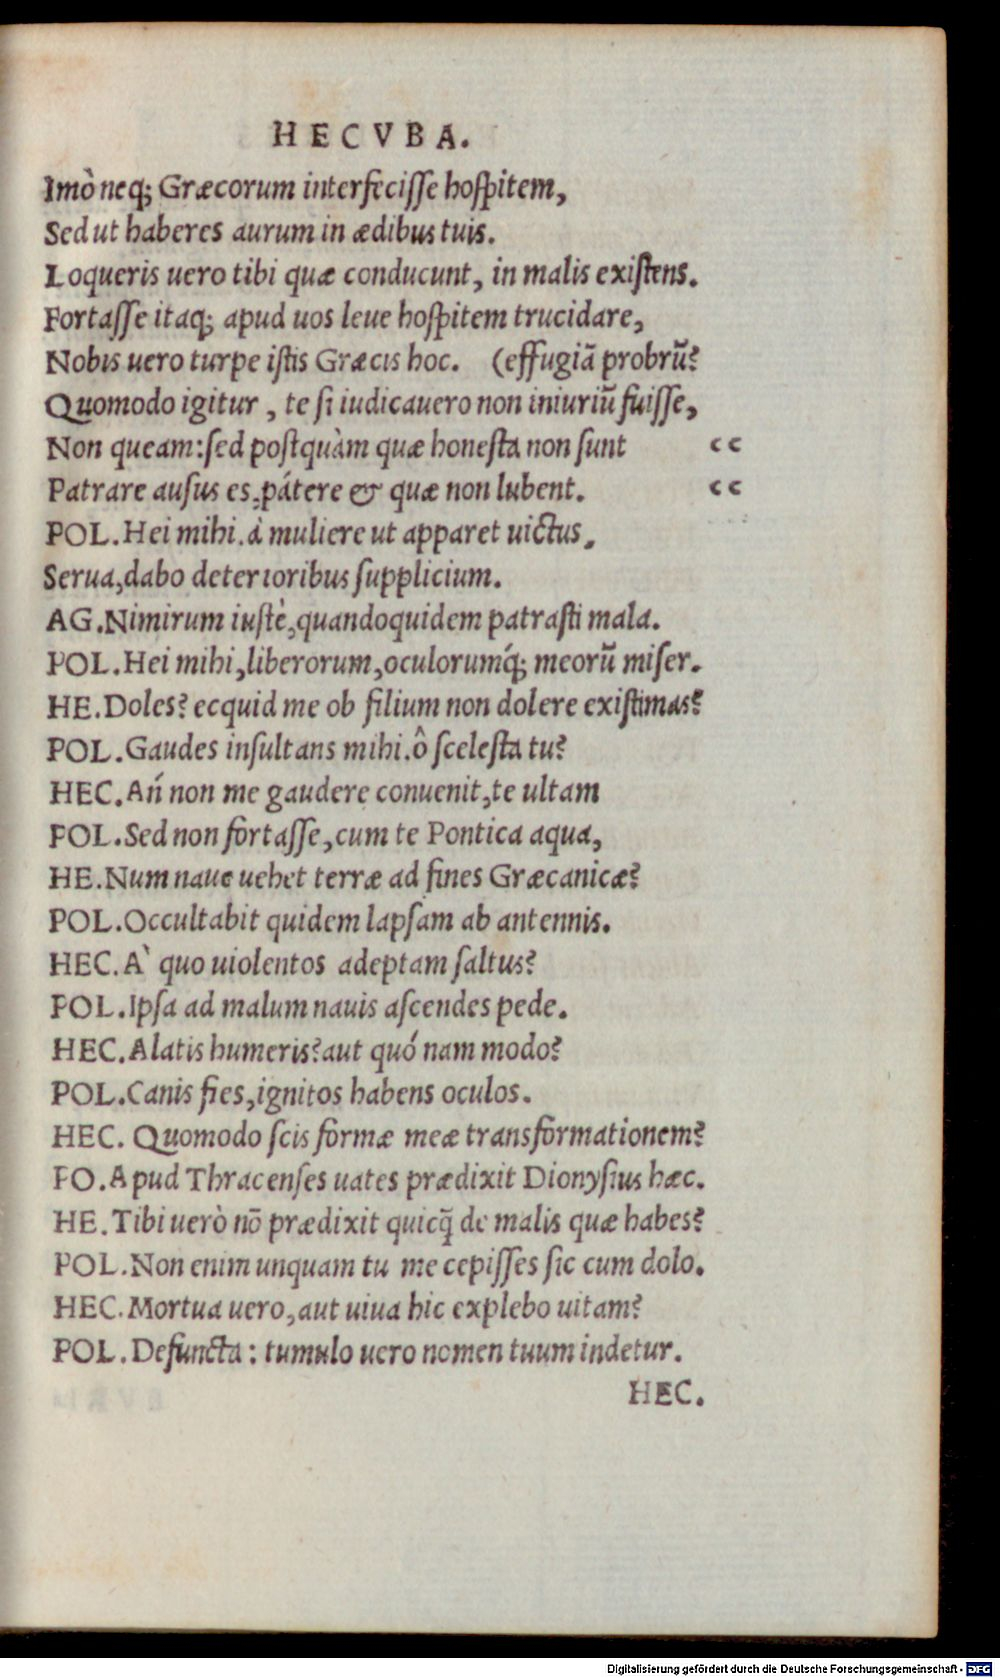 HECVBA.
Imò neq; Græcorum interfecisse hospitem,
Sed ut haberes aurum in ædibus tuis.
Loqueris uero tibi quæ conducunt, in malis existens.
Fortasse itaq; apud uos leue hospitem trucidare,
Nobis uero turpe istis Græcis hoc. (effugiā probrū?
Quomodo igitur, te si iudicauero non iniuriū fuisse,
Non queam: sed postquàm quæ honesta non sunt cc
Patrare ausus es, pátere & quæ non lubent. cc
POL. Hei mihi. à muliere ut apparet uictus,
Serua, dabo deterioribus supplicium.
AG. Nimirum iustè, quandoquidem patrasti mala.
POL. Hei mihi, liberorum, oculorumq́; meorū miser.
HE. Doles? ecquid me ob filium non dolere existimas?
POL. Gaudes insultans mihi. ô scelesta tu?
HEC. Ań non me gaudere conuenit, te ultam
POL. Sed non fortasse, cum te Pontica aqua,
HE. Num naue uehet terræ ad fines Græcanicæ?
POL. Occultabit quidem lapsam ab antennis.
HEC. A` quo uiolentos adeptam saltus?
POL. Ipsa ad malum nauis ascendes pede.
HEC. Alatis humeris? aut quó nam modo?
POL. Canis fies, ignitos habens oculos.
HEC. Quomodo scis formæ meæ transformationem?
PO. Apud Thracenses uates prædixit Dionysius hæc.
HE. Tibi uerò nō prædixit quicq̄ de malis quæ habes?
POL. Non enim unquam tu me cepisses sic cum dolo.
HEC. Mortua uero, aut uiua hic explebo uitam?
POL. Defuncta: tumulo uero nomen tuum indetur.
HEC.
Digitalisierung gefördert durch die Deutsche Forschungsgemeinschaft - DFG